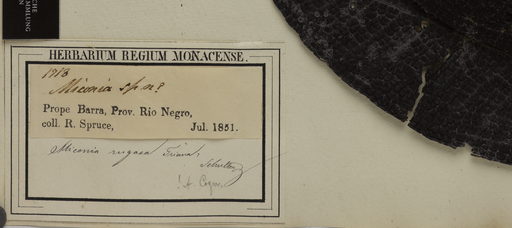 CHE
MMLUNG
HERBARIUM REGIUM MONACENSE.
1713
Miconia sp n?
Prope Barra, Prov. Rio Negro,
coll. R. Spruce, Jul. 1851.
Miconia rugosa Triana
! A. Cogn.